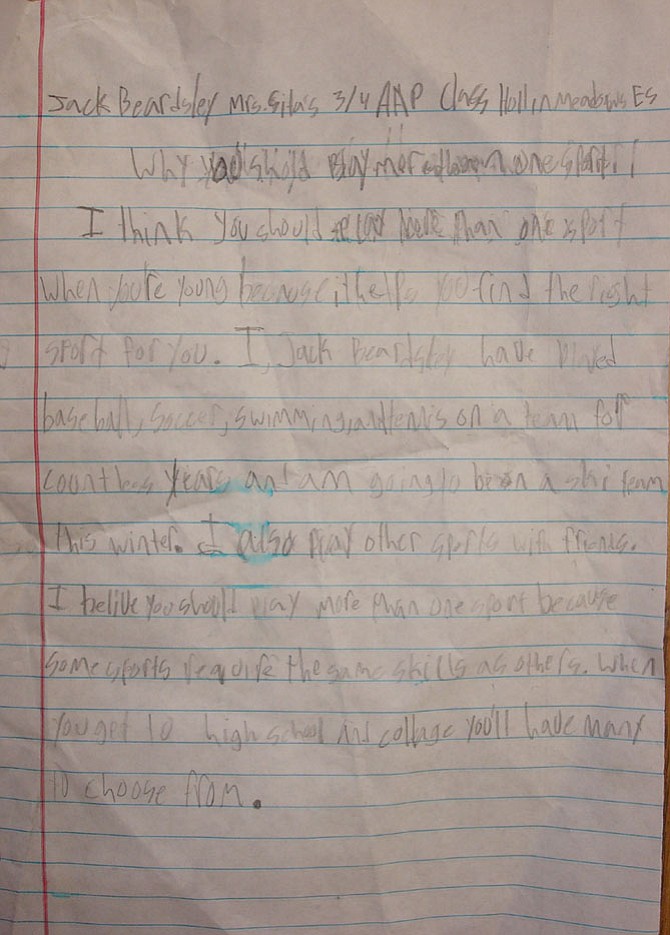 Jack Beardsley Mrs. Silas 3/4 AAP Class Hollin Meadows ES
Why you shold play more than one sport!!
I think you should play more than one sport
when you're young because it helps you find the right
sport for you. I, Jack Beardsley have played
baseball, soccer, swimming, and tennis on a team for
countless years and am going to be on a ski team
this winter. I also play other sports with friends.
I belive you should play more than one sport because
some sports require the same skills as others. When
you get to high school and collage you'll have many
to choose from.